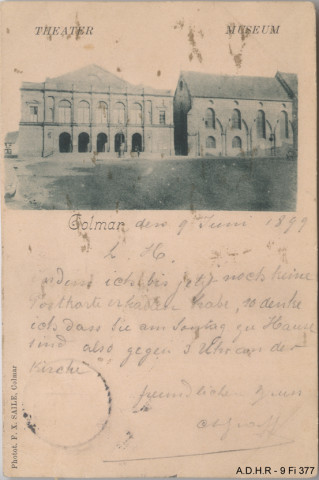 THEATER MUSEUM
Colmar, den 9 Juni 1899
L. H.
Indem ich bis jetzt noch keine
Postkarte erhalten habe, so denke
ich dass Sie am Sontag zu Hause
sind also gegen 3 Uhr an der
Kirche
freundlichen Gruss
Photot. F. X. SAILE, Colmar
A.D.H.R - 9 Fi 377